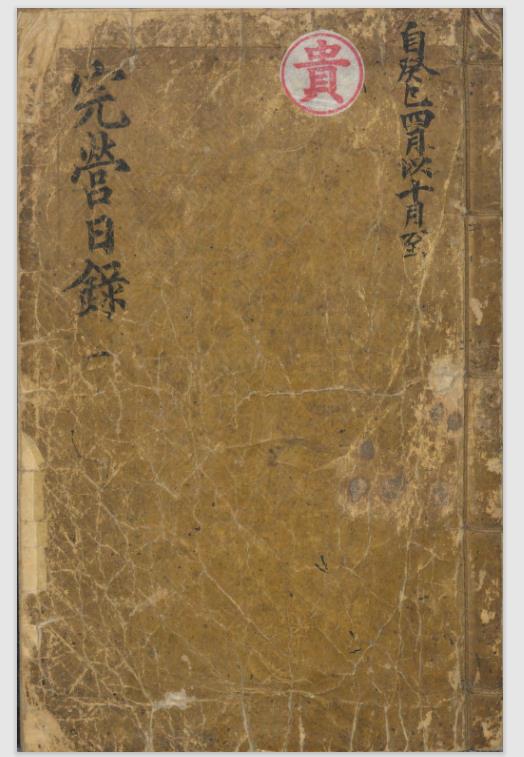 自癸巳四月以十月至
貴
完營日錄 一